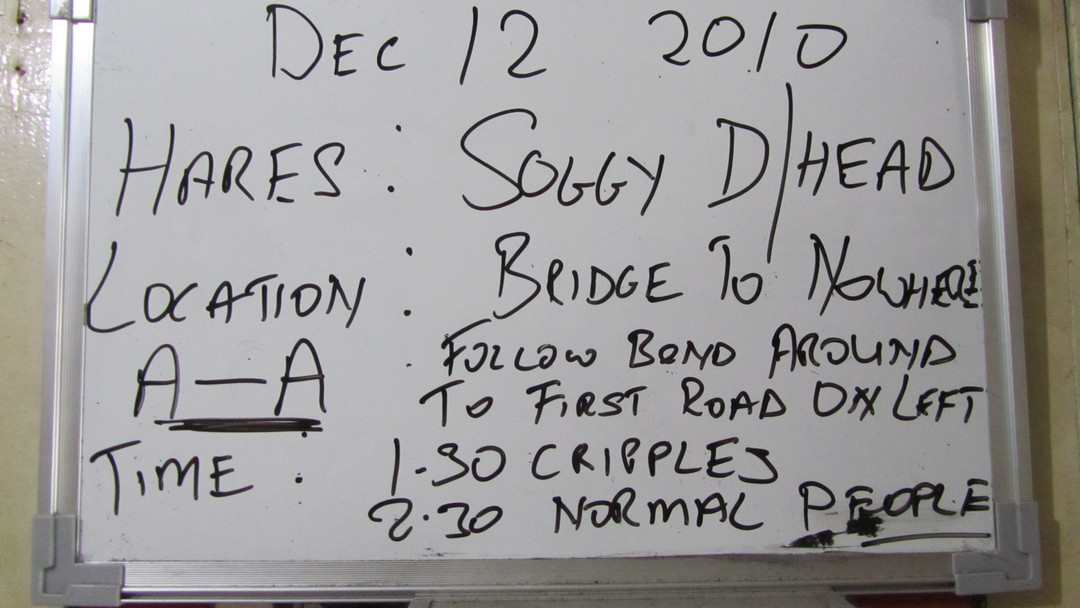 DEC 12 2010
HARES : SOGGY D/HEAD
LOCATION : BRIDGE TO NOWHERE
A—A . FOLLOW BEND AROUND
TO FIRST ROAD ON LEFT
TIME : 1-30 CRIPPLES
2.30 NORMAL PEOPLE